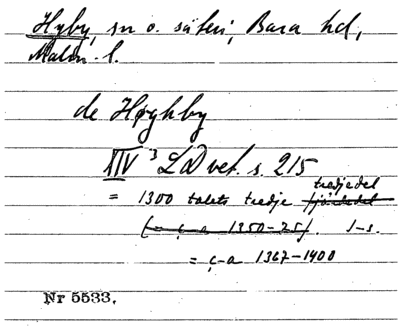 Hyby, sn o. säteri, Bara hd,
Malm. l.
de Høghby
XIV 3 LD vet. s. 215
tredjedel
= 1300 talets tredje fjärdedel
(= c-a 1350-75). 1-s.
= c-a 1367-1400
Nr 5533.